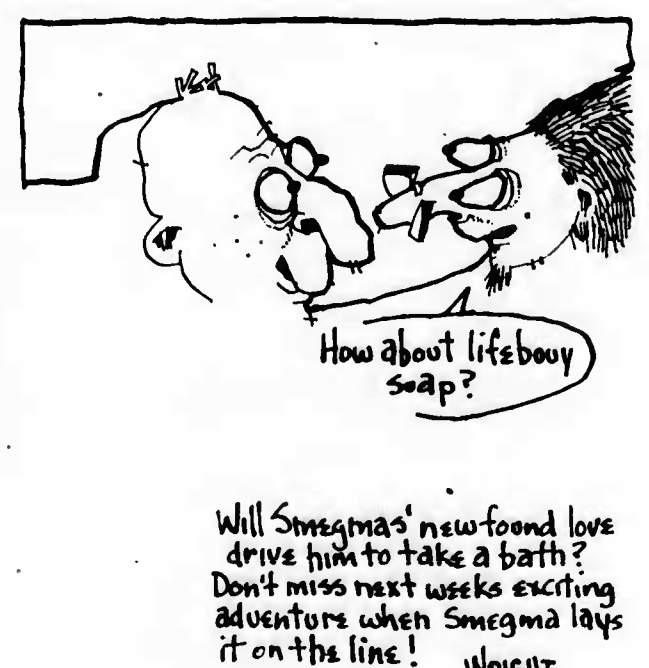 How about lifebouy
soap?
Will Smegmas' newfound love
drive him to take a bath?
Don't miss next weeks exciting
adventure when Smegma lays
it on the line!